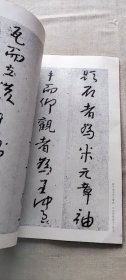 題石者為米元章袖
手而仰觀者為王仲至
而立後